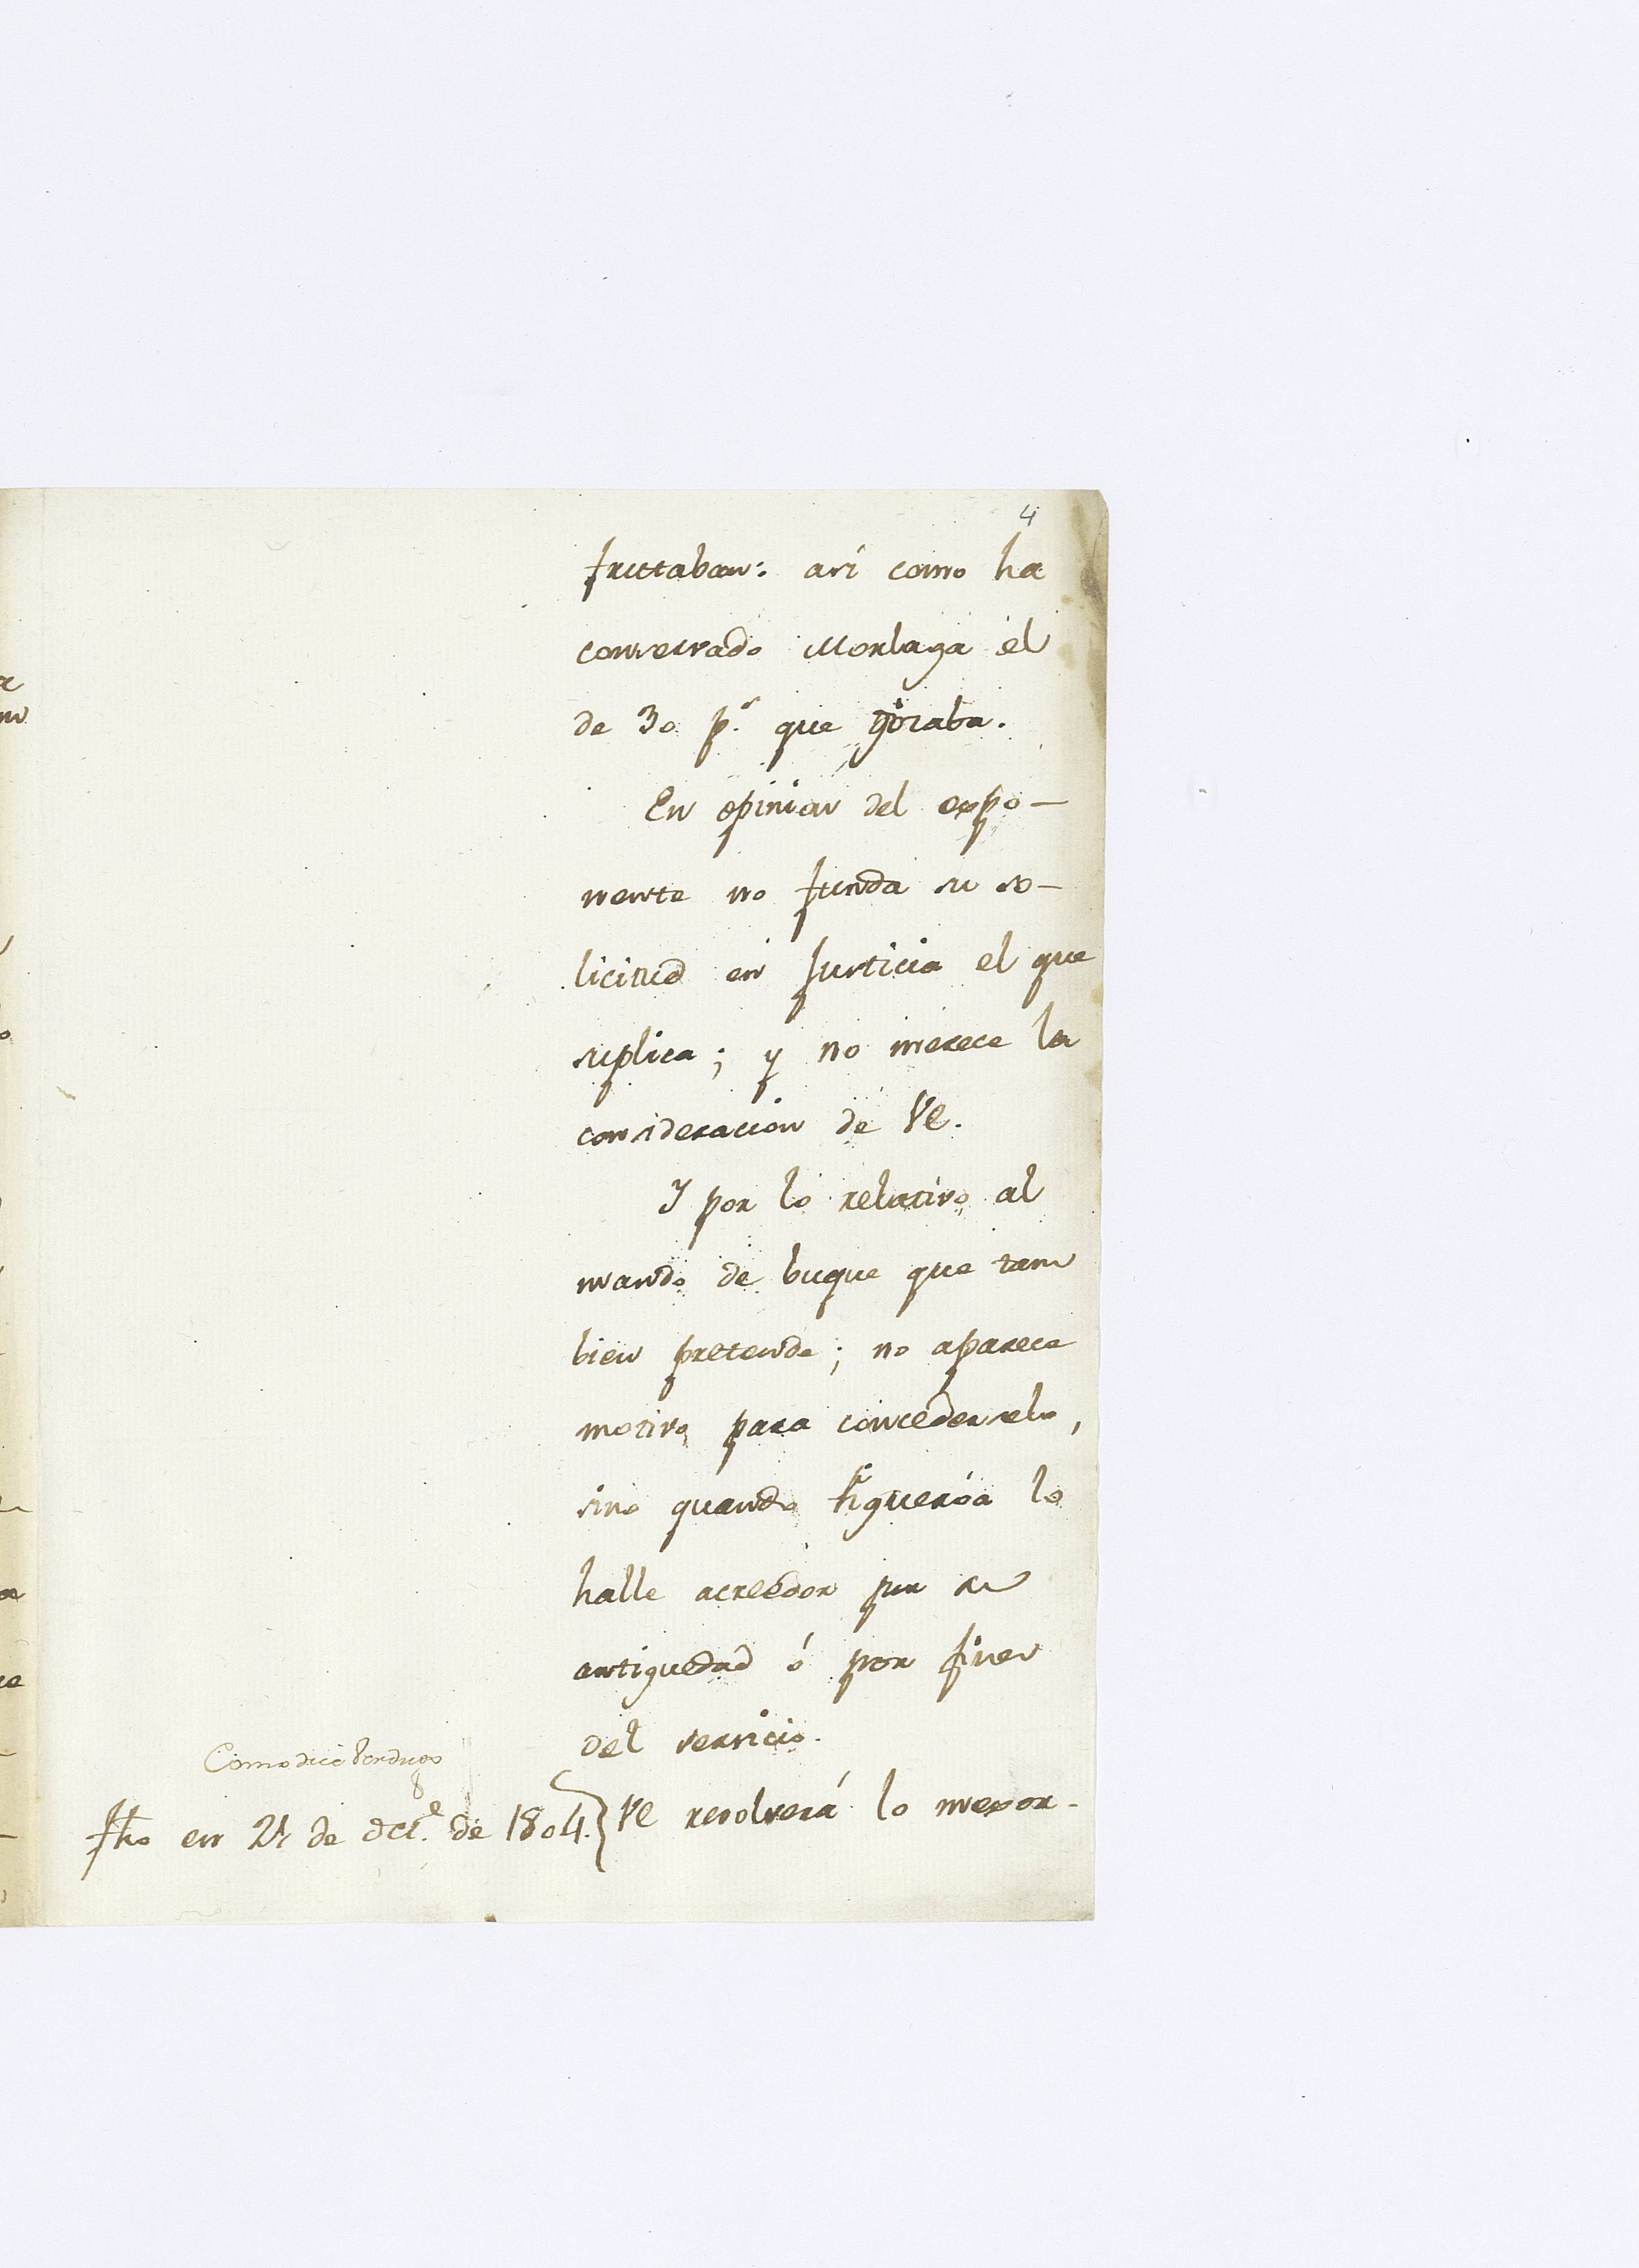 4
frutaban: asi como ha
conservado Morlaga el
de 30 p.s que gozaba.
En opinion del expo-
nente no funda su so-
licitud en justicia el que
suplica; y no merece la
consideracion de VE.
Y por lo relativo al
mando de buque que tam
bien pretende; no aparece
motivo para concederselo,
sino quando Figueróa lo
halle acreedor por su
antiguedad ó por fines
del servicio.
VE resolverá lo mexor.
Como dice Verdugo
fho en 21 de oct.e de 1804.